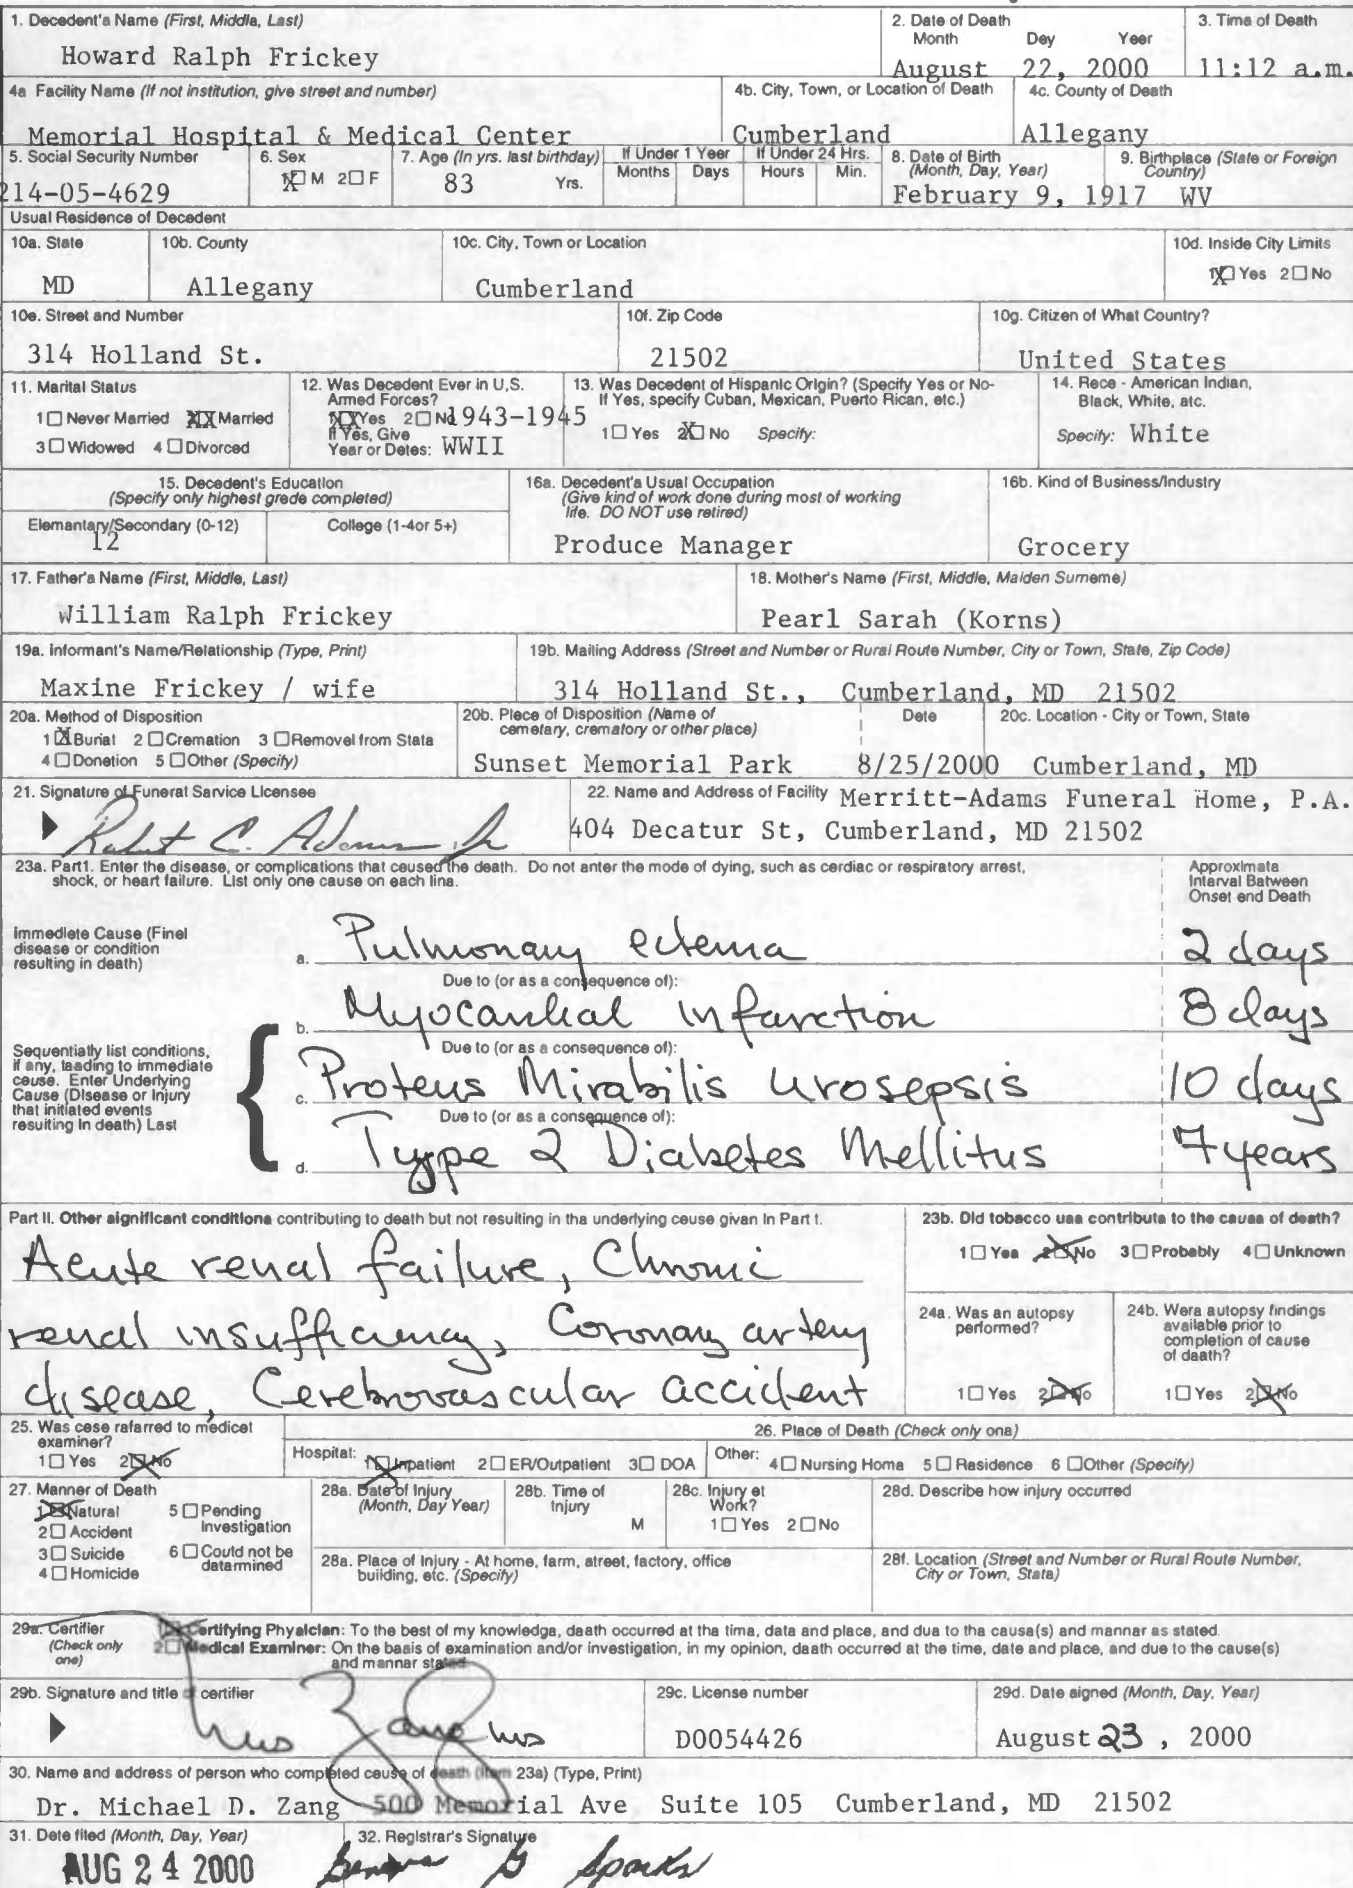 1. Decedent's Name (First, Middle, Last)
Howard Ralph Frickey
2. Date of Death
Month Day Year
August 22, 2000
3. Time of Death
11:12 a.m.
4a Facility Name (If not institution, give street and number)
Memorial Hospital & Medical Center
4b. City, Town, or Location of Death
Cumberland
4c. County of Death
Allegany
5. Social Security Number
214-05-4629
6. Sex
1☒ M 2☐ F
7. Age (In yrs. last birthday)
83 Yrs.
If Under 1 Year
Months Days
If Under 24 Hrs.
Hours Min.
8. Date of Birth
(Month, Day, Year)
February 9, 1917
9. Birthplace (State or Foreign
Country)
WV
Usual Residence of Decedent
10a. State
MD
10b. County
Allegany
10c. City, Town or Location
Cumberland
10d. Inside City Limits
1☒ Yes 2☐ No
10e. Street and Number
314 Holland St.
10f. Zip Code
21502
10g. Citizen of What Country?
United States
11. Marital Status
1☐ Never Married XX Married
3☐ Widowed 4☐ Divorced
12. Was Decedent Ever in U.S.
Armed Forces?
XX Yes 2☐ No 1943-1945
If Yes, Give
Year or Dates: WWII
13. Was Decedent of Hispanic Origin? (Specify Yes or No-
If Yes, specify Cuban, Mexican, Puerto Rican, etc.)
1☐ Yes 2☒ No Specify:
14. Race - American Indian,
Black, White, etc.
Specify: White
15. Decedent's Education
(Specify only highest grade completed)
Elementary/Secondary (0-12)
12
College (1-4or 5+)
16a. Decedent's Usual Occupation
(Give kind of work done during most of working
life. DO NOT use retired)
Produce Manager
16b. Kind of Business/Industry
Grocery
17. Father's Name (First, Middle, Last)
William Ralph Frickey
18. Mother's Name (First, Middle, Maiden Surname)
Pearl Sarah (Korns)
19a. Informant's Name/Relationship (Type, Print)
Maxine Frickey / wife
19b. Mailing Address (Street and Number or Rural Route Number, City or Town, State, Zip Code)
314 Holland St., Cumberland, MD 21502
20a. Method of Disposition
1☒ Burial 2☐ Cremation 3☐ Removal from State
4☐ Donation 5☐ Other (Specify)
20b. Place of Disposition (Name of
cemetary, crematory or other place)
Sunset Memorial Park
Date
8/25/2000
20c. Location - City or Town, State
Cumberland, MD
21. Signature of Funeral Service Licensee
Robert C. Adams, Jr
22. Name and Address of Facility Merritt-Adams Funeral Home, P.A.
404 Decatur St, Cumberland, MD 21502
23a. Part1. Enter the disease, or complications that caused the death. Do not enter the mode of dying, such as cardiac or respiratory arrest,
shock, or heart failure. List only one cause on each line.
Approximate
Interval Between
Onset and Death
Immediate Cause (Final
disease or condition
resulting in death)
a. Pulmonary edema 2 days
Due to (or as a consequence of):
b. Myocardial Infarction 8 days
Due to (or as a consequence of):
Sequentially list conditions,
if any, leading to immediate
cause. Enter Underlying
Cause (Disease or Injury
that initiated events
resulting in death) Last
c. Proteus Mirabilis urosepsis 10 days
Due to (or as a consequence of):
d. Type 2 Diabetes Mellitus 7 years
Part II. Other significant conditions contributing to death but not resulting in the underlying cause given in Part I.
Acute renal failure, Chronic
renal insufficiency, Coronary artery
disease, Cerebrovascular accident
23b. Did tobacco use contribute to the cause of death?
1☐ Yes 2☒ No 3☐ Probably 4☐ Unknown
24a. Was an autopsy
performed?
1☐ Yes 2☒ No
24b. Were autopsy findings
available prior to
completion of cause
of death?
1☐ Yes 2☒ No
25. Was case referred to medical
examiner?
1☐ Yes 2☒ No
26. Place of Death (Check only one)
Hospital: 1☒ Inpatient 2☐ ER/Outpatient 3☐ DOA Other: 4☐ Nursing Home 5☐ Residence 6☐ Other (Specify)
27. Manner of Death
1☒ Natural 5☐ Pending
2☐ Accident Investigation
3☐ Suicide 6☐ Could not be
4☐ Homicide determined
28a. Date of Injury
(Month, Day Year)
28b. Time of
Injury
M
28c. Injury at
Work?
1☐ Yes 2☐ No
28d. Describe how injury occurred
28e. Place of Injury - At home, farm, street, factory, office
building, etc. (Specify)
28f. Location (Street and Number or Rural Route Number,
City or Town, State)
29a. Certifier
(Check only
one)
1☒ Certifying Physician: To the best of my knowledge, death occurred at the time, date and place, and due to the cause(s) and manner as stated.
2☐ Medical Examiner: On the basis of examination and/or investigation, in my opinion, death occurred at the time, date and place, and due to the cause(s)
and manner stated
29b. Signature and title of certifier
29c. License number
D0054426
29d. Date signed (Month, Day, Year)
August 23, 2000
30. Name and address of person who completed cause of death (Item 23a) (Type, Print)
Dr. Michael D. Zang 500 Memorial Ave Suite 105 Cumberland, MD 21502
31. Date filed (Month, Day, Year)
AUG 24 2000
32. Registrar's Signature
Sparks